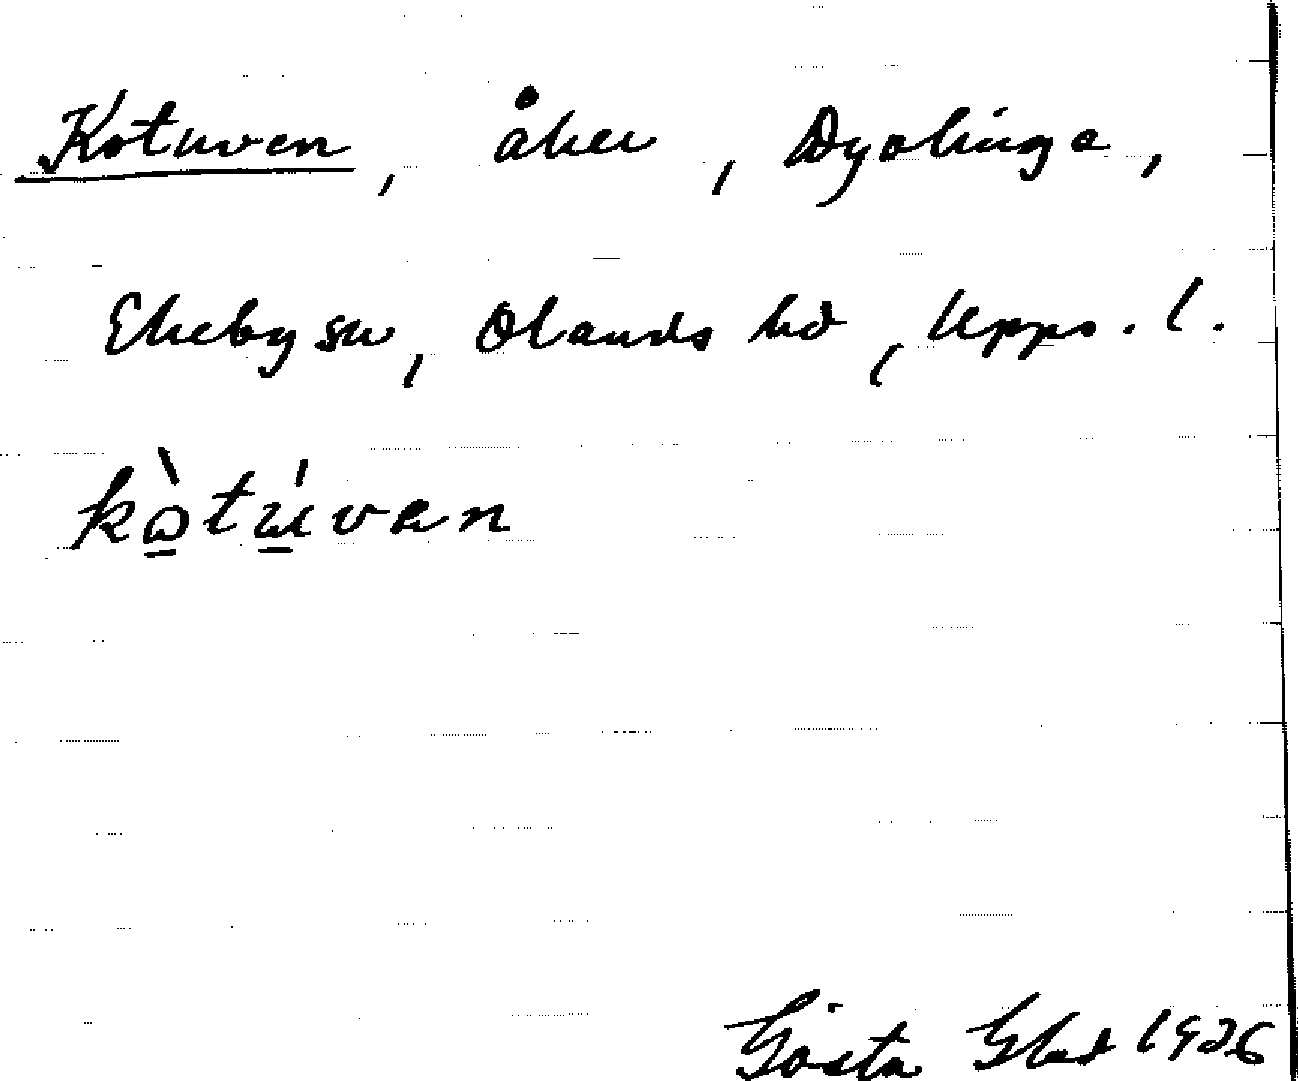 Kotuven, åker, Dyalinge,
Ekeby sn, Olands hd, Upps. l.
kòtúvan
Gösta 1926